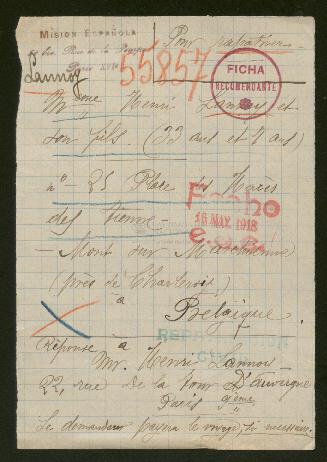 MISION ESPAÑOLA
Rue de la
Paris XVI
Pour rapatrier
55857
Lannoy
FICHA
RECOMENDANTE
Mme Henri Lannoy et
son fils (33 ans et 7 ans)
n° 25 Place des
des
Fecho
16 MAY. 1918
Mont sur Marchienne
(près de Charleroi)
à
Belgique.
Réponse à
Mr. Henri Lannoy
22, rue de la Tour D'auvergne
Paris 9ème
Le demandeur payera le voyage, si necessaire.